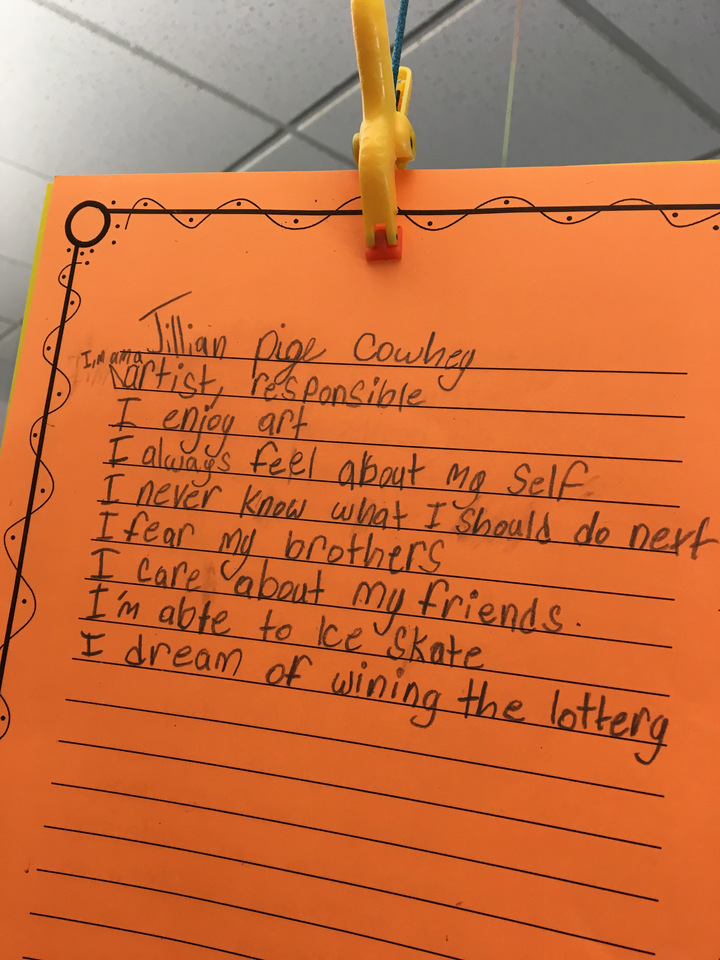 Jillian Pige Cowhey
I'm a
artist, responsible
I enjoy art
I always feel about my self.
I never know what I should do next
I fear my brothers
I care about my friends.
I'm able to Ice Skate
I dream of wining the lottery